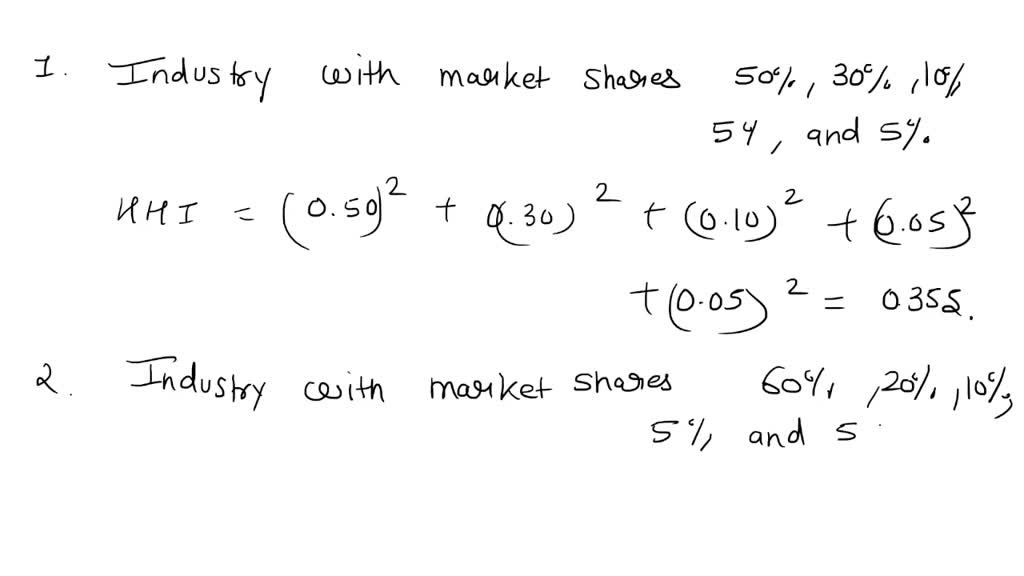 1. Industry with market shares 50%, 30%, 10%,
5%, and 5%.
HHI = (0.50)² + (0.30)² + (0.10)² + (0.05)²
+ (0.05)² = 0355.
2. Industry with market shares 60%, 20%, 10%,
5%, and 5